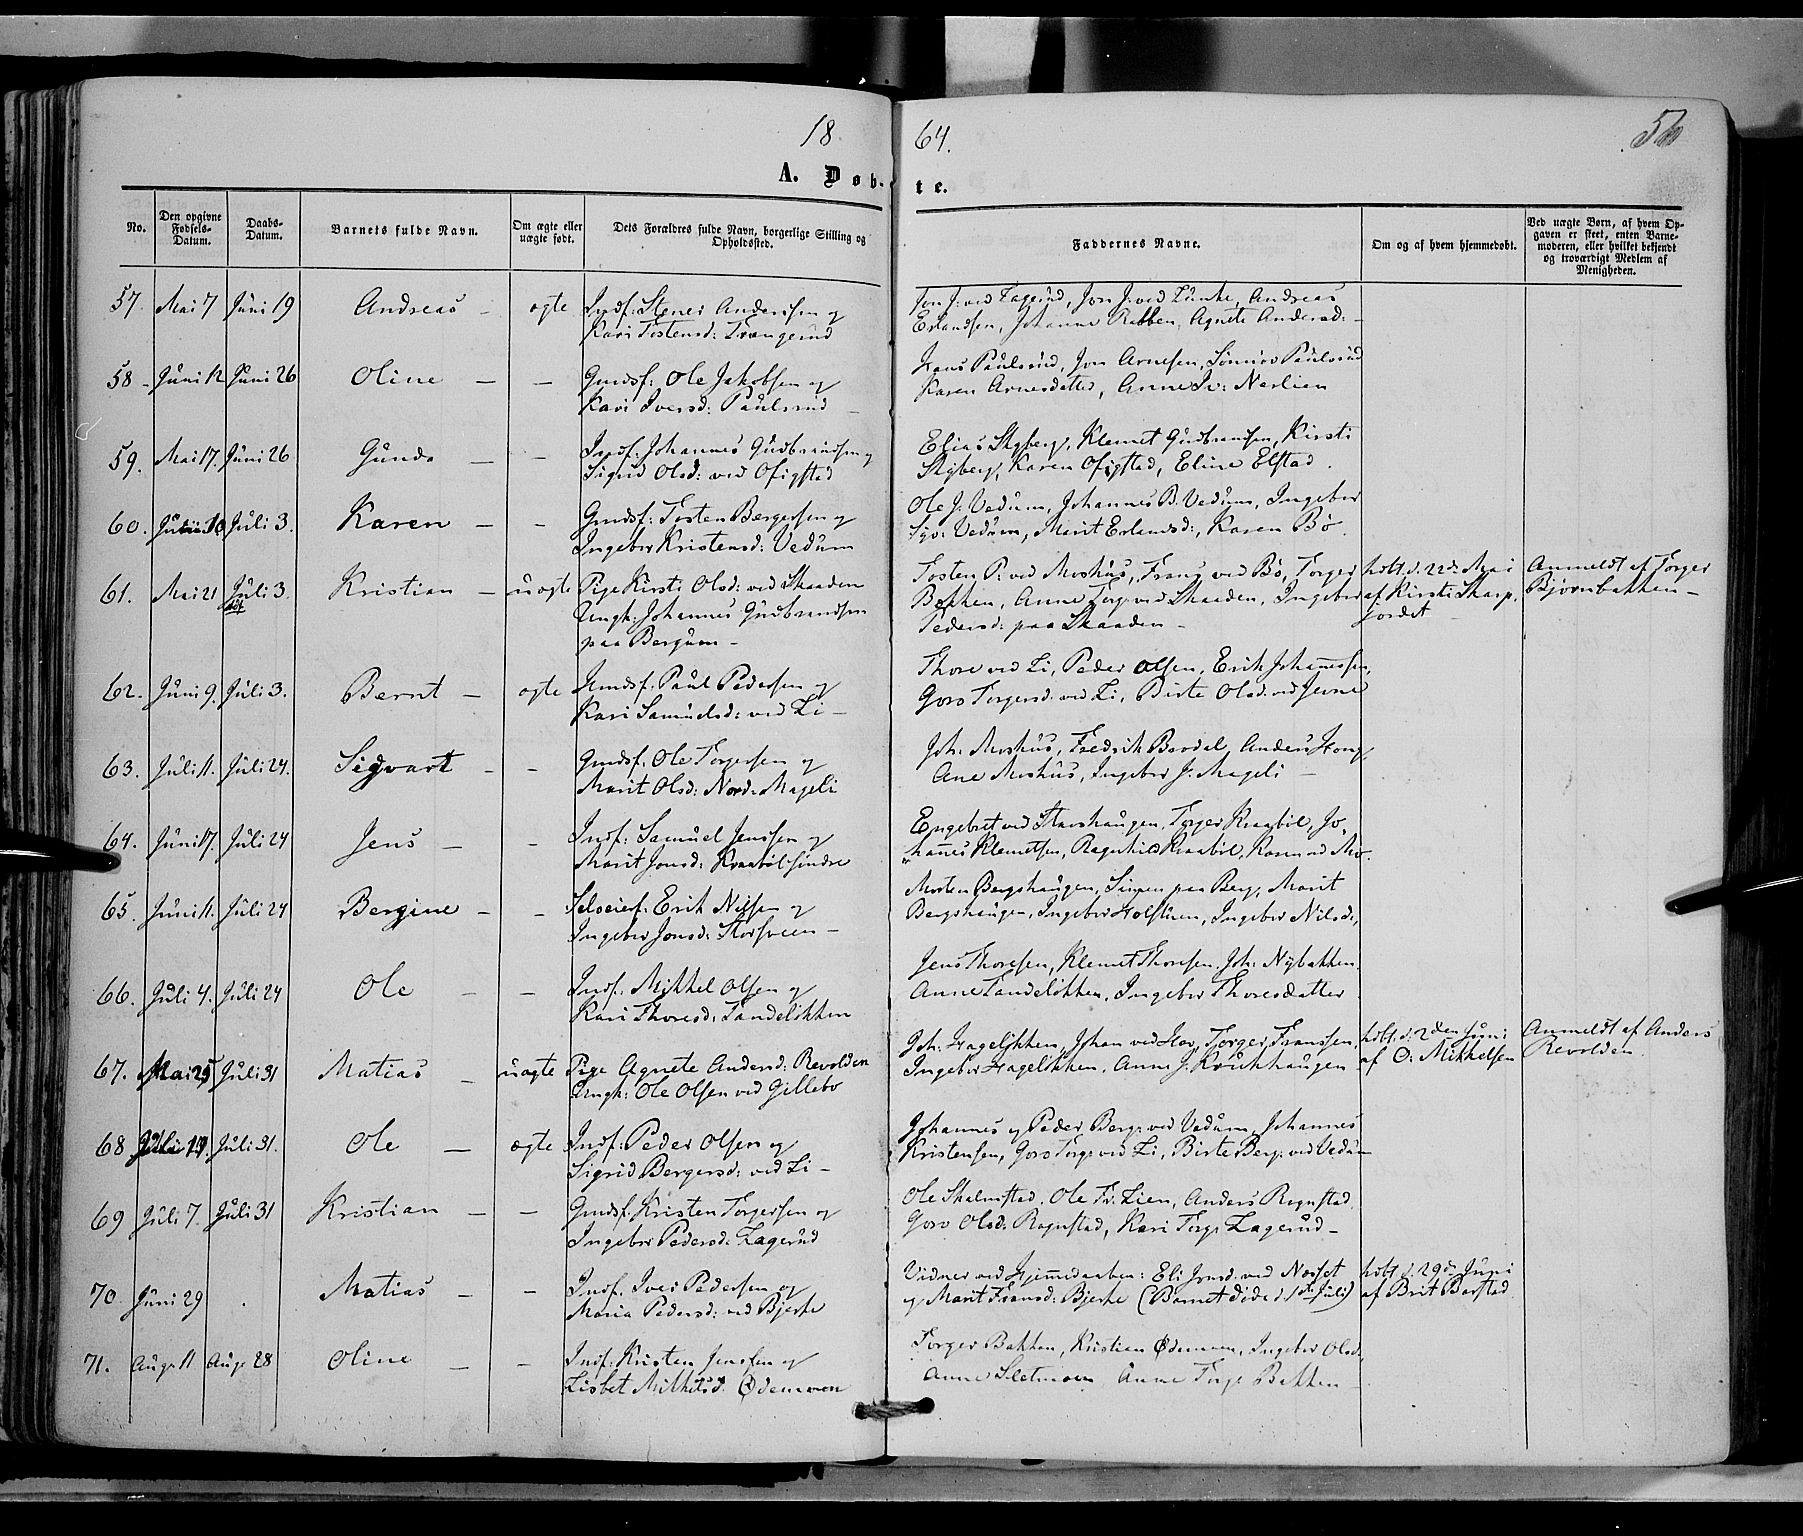 18
64.
A. Døb-
te.
No.
Den opgivne Fødsels-Datum.
Daabs-Datum.
Barnets fulde Navn.
Om ægte eller uægte født.
Dets Forældres fulde Navn, borgerlige Stilling og Opholdssted.
Faddernes Navne.
Om og af hvem hjemmedøbt.
Ved uægte Børn, af hvem Opgaven er skeet, enten Barnemoderen, eller hvilket bekjendt og troværdigt Medlem af Menigheden.
57. Mai 7 Juni 19 Andreas - ægte Indf: Stener Anderssen og
Kari Tostensd: Trangerud
Jon J: ved Lagerud, Jon J: ved Lunke, Andreas
Erlandsen, Johanne Rabben, Agnete Andersd: -
58 - Juni 12 Juni 26 Oline - - Gmdsf: Ole Jakobsen og
Kari Iversd: Paulsrud
Hans Paulsrud, Jon Arnesen, Paulsrud
Karen Arnesdatter, Anne Iv: Narlien
59. Mai 17. Juni 26 Gunda - - Indf: Johannes Gudbrandsen og
Sigrid Olsd: ved Ofigstad
Elias Skyberg, Klemet Gudbrandsen, Kirsti
Skyberg, Karen Ofigstad, Eline Elstad.
60. 10 Juli 3. Karen - - Gmdsf: Tosten Bergersen og
Ingebor Kristensd: Vedum
Ole J. Vedum, Johannes B. Vedum, Ingebor
Vedum, Marit Erlandsd:, Karen Bø.
61. Mai 21 Juli 3 Kristian - uægte Pige Kirsti Olsd: ved Skaaden
Ungk: Johannes Gudbrandsen
paa Bergum -
Tosten P: ved Moshus, Frans ved Bø, Torger
Bakken, Anne Torg: ved Skaaden, Ingebor
Pedersd: paa Skaaden -
hdbt. d. 22de Mai
af Kirsti Skarp-
jordet -
Anmeldt af Torger
Bjørnbakken -
62. Juni 9. Juli 3. Bernt - ægte Gmdsf: Paul Pedersen og
Kari Samuelsd: ved Li -
Thore ved Li, Peder Olsen, Erik Johannessen,
Goro Torgersd. ved Li, Birte Olsd. ved Jevne
63. Juli 1. Juli 24. Sigvart - - Gmdsf: Ole Torgersen og
Marit Olsd: Nord-Mageli
Joh: Moshus, Fredrik Baardal, Anders Hong,
Ane Moshus, Ingebor J: Mageli -
64. Juni 17. Juli 24 Jens - - Indf: Samuel Jenssen og
Marit Jonsd: Kraabølsindre
Engebret ved Stavshaugen, Torger Kraabøl, Jo-
hannes Klemetsen, Ragnhild Kraabøl, Karen ved Mo.
65. Juni 11. Juli 24 Bergine - - Selveierf: Erik Nilsen og
Ingebor Jonsd: Storsveen -
Morten Bergshaugen, Simen paa Berg, Marit
Bergshaugen, Ingebor Holstuen, Ingebor Nilsd:,
66. Juli 4. Juli 24 Ole - - Indf: Mikkel Olsen og
Kari Thoresd: Sandeløkken
Jens Thoresen, Klemet Thoresen, Joh: Nybakken
Anne Sandeløkken, Ingebor Thoresdatter
67. Mai 25 Juli 31 Matias - uægte Pige Agnete Andersd: Revolden
Ungk: Ole Olsen ved Gillebo
Joh: Hageløkken, Johan ved Hov, Torger Franssen,
Ingebor Hageløkken, Anne J. Krukhaugen
hdbt. d. 2den Juni
af O: Mikkelsen
Anmeldt af Anders
Revolden.
68 Juli 31. Ole - ægte Indf: Peder Olsen og
Sigrid Bergersd: ved Li -
Johannes og Peder Berg: ved Vedum, Johannes
Kristensen, Goro Torg: ved Li, Birte Berg: ved Vedum
69 Juli 7. Juli 31 Kristian - - Gmdsf: Kristen Torgersen og
Ingebor Pedersd: Lagerud
Ole Skalmstad, Ole Fr: Lien, Anders Rognstad
Goro Olsd: Rognstad, Kari Torg: Lagerud -
70. Juni 29 . Matias - - Indf: Iver Pedersen og
Maria Pedersd: ved Bjerke
Vidner ved Hjemmedaaben: Eli Jonsd: ved Norset
og Marit Fransd: Bjerke (Barnet døde d. 1ste Juli)
hdbt. d. 29de Juni
af Brit Borstad
71. Aug: 11 Aug: 28 Oline - - Indf: Kristen Jenssen og
Lisbet Mikkelsd: Ødemoen
Torger Bakken, Kristian Ødemoen, Ingebor Olsd:,
Anne Sletmoen, Anne Torg: Bakken -